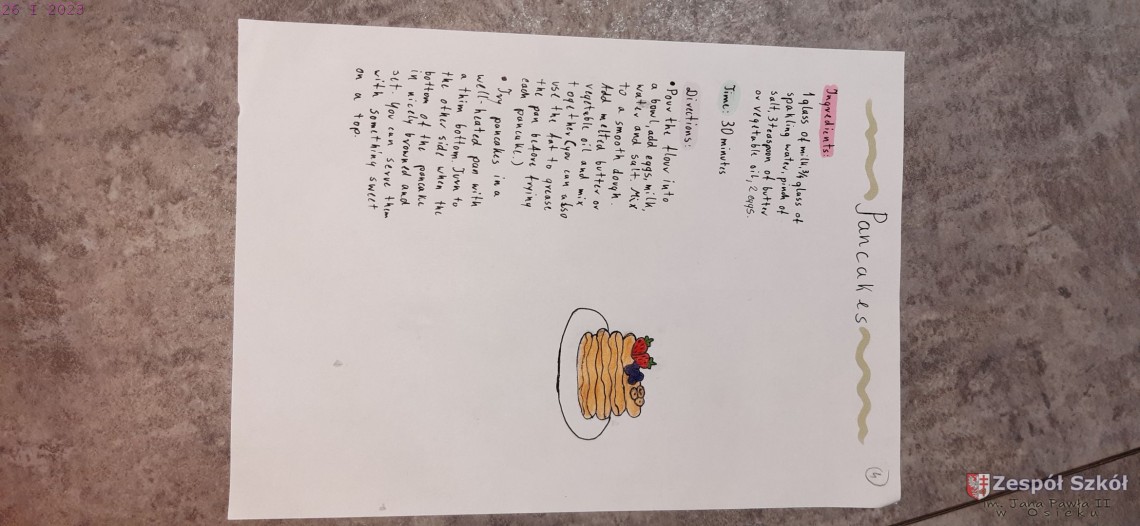 26 I 2023
Pancakes
4
Ingredients:
1 glass of milk, 3/4 glass of
sparkling water, pinch of
salt, 3 teaspoon of butter
or vegetable oil, 2 eggs.
Time: 30 minutes
Directions:
• Pour the flour into
a bowl, add eggs, milk,
water and salt. Mix
to a smooth dough.
Add melted butter or
vegetable oil and mix
together, (you can also
use the fat to grease
the pan before frying
each pancake.)
• Fry pancakes in a
well-heated pan with
a thim bottom. Turn to
the other side when the
bottom of the pancake
in nicely browned and
set. You can serve them
with something sweet
on a top.
Zespół Szkół
im. Jana Pawła II
w Osieku